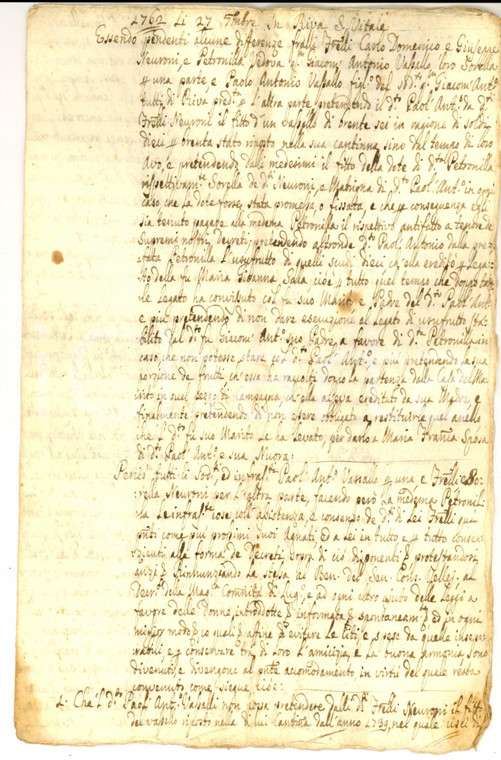 1762 Li 27 7mbre In Riva S. Vitale
Essendo pendenti alcune differenze frà li Frelli Carlo Domenico e Giuseppe
Neuroni, e Petronilla Vedova q. Giacom' Antonio Vassallo loro Sorella
p una parte, e Paolo Antonio Vassallo figl.º del Giacom' Ant.º
tutti di Riva pred.ª p l'altra parte, pretendendo il d.º Paol' Ant.º da d.i
Frelli Neuroni il fitto d'un Vassello di brente sei in ragione di soldi
dieci p brenta stato riposto nella sua cantinna sino dal tempo di loro
Avo, e pretendendo dalli medesimi il fitto della dote di d.ª Petronilla
rispettivam.te Sorella de d.i Neuroni, e Matrigna di d.º Paol' Ant.º in ogni
caso che la dote fosse stata promessa, o fissata, e che p conseguenza egli
sia tenuto pagare alla medema Petronilla il rispettivo antifatto a tenore de
Supremi nostri Decreti, pretendendo altronde d.º Paol' Antonio dalla pre
stata Petronilla L'usufrutto di quelli scudi dieci, ch'ella ereditò p Lega
to della fu Maria Giovanna Sala cioè p tutto quel tempo che doppo tal
le Legato ha convivuto col fu suo Marito, e Padre del d.º Paol' Ant.º
e più pretendendo di non dare esecuzione al Legato di usufrutto sta
bilito dal d.º fu Giacom' Ant.º suo Padre, a favore di d.ª Petronilla in
caso che non potesse stare col d.º Paol' Ant.º, e più pretendendo la sua
porzione de frutti, ch'essa ha raccolti doppo la partenza dalla Casa del Ma
rito in quel pezzo di campagna, ch'ella aveva ereditato da sua Madre, e
finalmente pretendendo di non essere obligato a restituirle quel anello
che il d.º fu suo Marito Le ha levato, per darlo a Maria Fran.ca Sposa
di d.º Paol' Ant.º e sua Nuora:
Perciò tutti li sod.i, ed infras.ti Paol' Ant.º Vassallo p una, e Frelli e So
rella Neuroni per l'altra parte, facendo però la medema Petronil
la le infras.te cose, coll' assistenza, e consenso de d.i di Lei Frelli qua
pnti come più prossimi suoi Agnati, ed a Lei in tutto, e p tutto consen
zienti alla forma de Decreti sopra di ciò disponenti, e protestandosi
anzi, e Rinunziando La stessa al Ben. del Sen. Cons. Vellej. al
Decr.º della Mag.ca Comunità di Lug.º, e ad ogni altro ajuto delle Leggi a
favore delle Donne introdotte, informata, spontaneam.te, ed in ogni
miglior modo, p quali, affine d'evitare le liti, e spese da quelle insepa
rabili, e p conservare tra di Loro L'amicizia, e La buona armonia sono
divenuti, e divengono al pnte accomodamento in virtù del quale resta
convenuto come siegue, cioè:
1.º Che l d.º Paol' Ant.º Vassalli non possa pretendere dalli d.i Frelli Neuroni il fitto
del vasello riposto nella di lui Cantina dall' anno 1739, nel quale uscì di